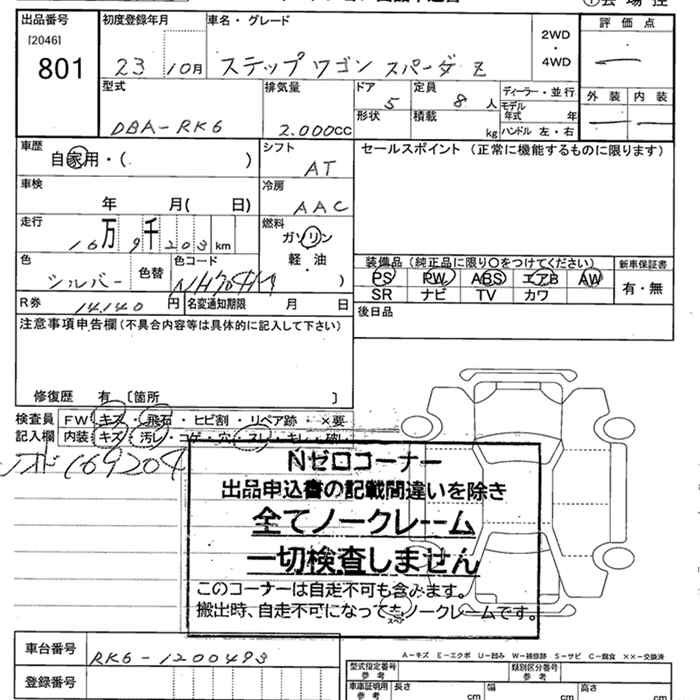 出品番号 初度登録年月 車名・グレード 評価点
[2046] 2WD
801 23 10月 ステップワゴン スパーダ Z ・ 4WD
型式 排気量 ドア 5 定員 8人 ディーラー・並行 外装 内装
DBA-RK6 2.000cc 形状 積載 kg モデル年式 年
ハンドル 左・右
車歴 自家用・( ) シフト AT セールスポイント (正常に機能するものに限ります)
車検 年 月( 日) 冷房 AAC
走行 16万9千203km 燃料 ガソリン
軽・油 )
装備品 (純正品に限り○をつけてください) 新車保証書
色 シルバー 色替 色コード PS PW ABS エアB AW 有・無
SR ナビ TV カワ
R券 14.140円 名変通知期限 月 日 後日品
注意事項申告欄(不具合内容等は具体的に記入して下さい)
修復歴 有 〔箇所 〕
検査員 FW キズ・飛石・ヒビ割・リペア跡・×要
記入欄 内装 キズ・汚レ・コゲ・穴・スレ・キレ・破レ
169204
Nゼロコーナー
出品申込書の記載間違いを除き
全てノークレーム
一切検査しません
このコーナーは自走不可も含みます。
搬出時、自走不可になってもノークレームです。
車台番号 RK6-1200493
A-キズ E-エクボ U-凹み W-補修跡 S-サビ C-腐食 ××-交換済
登録番号 型式指定番号 参考 類別区分番号 参考
車庫証明用 参考 長さ cm 幅 cm 高さ cm